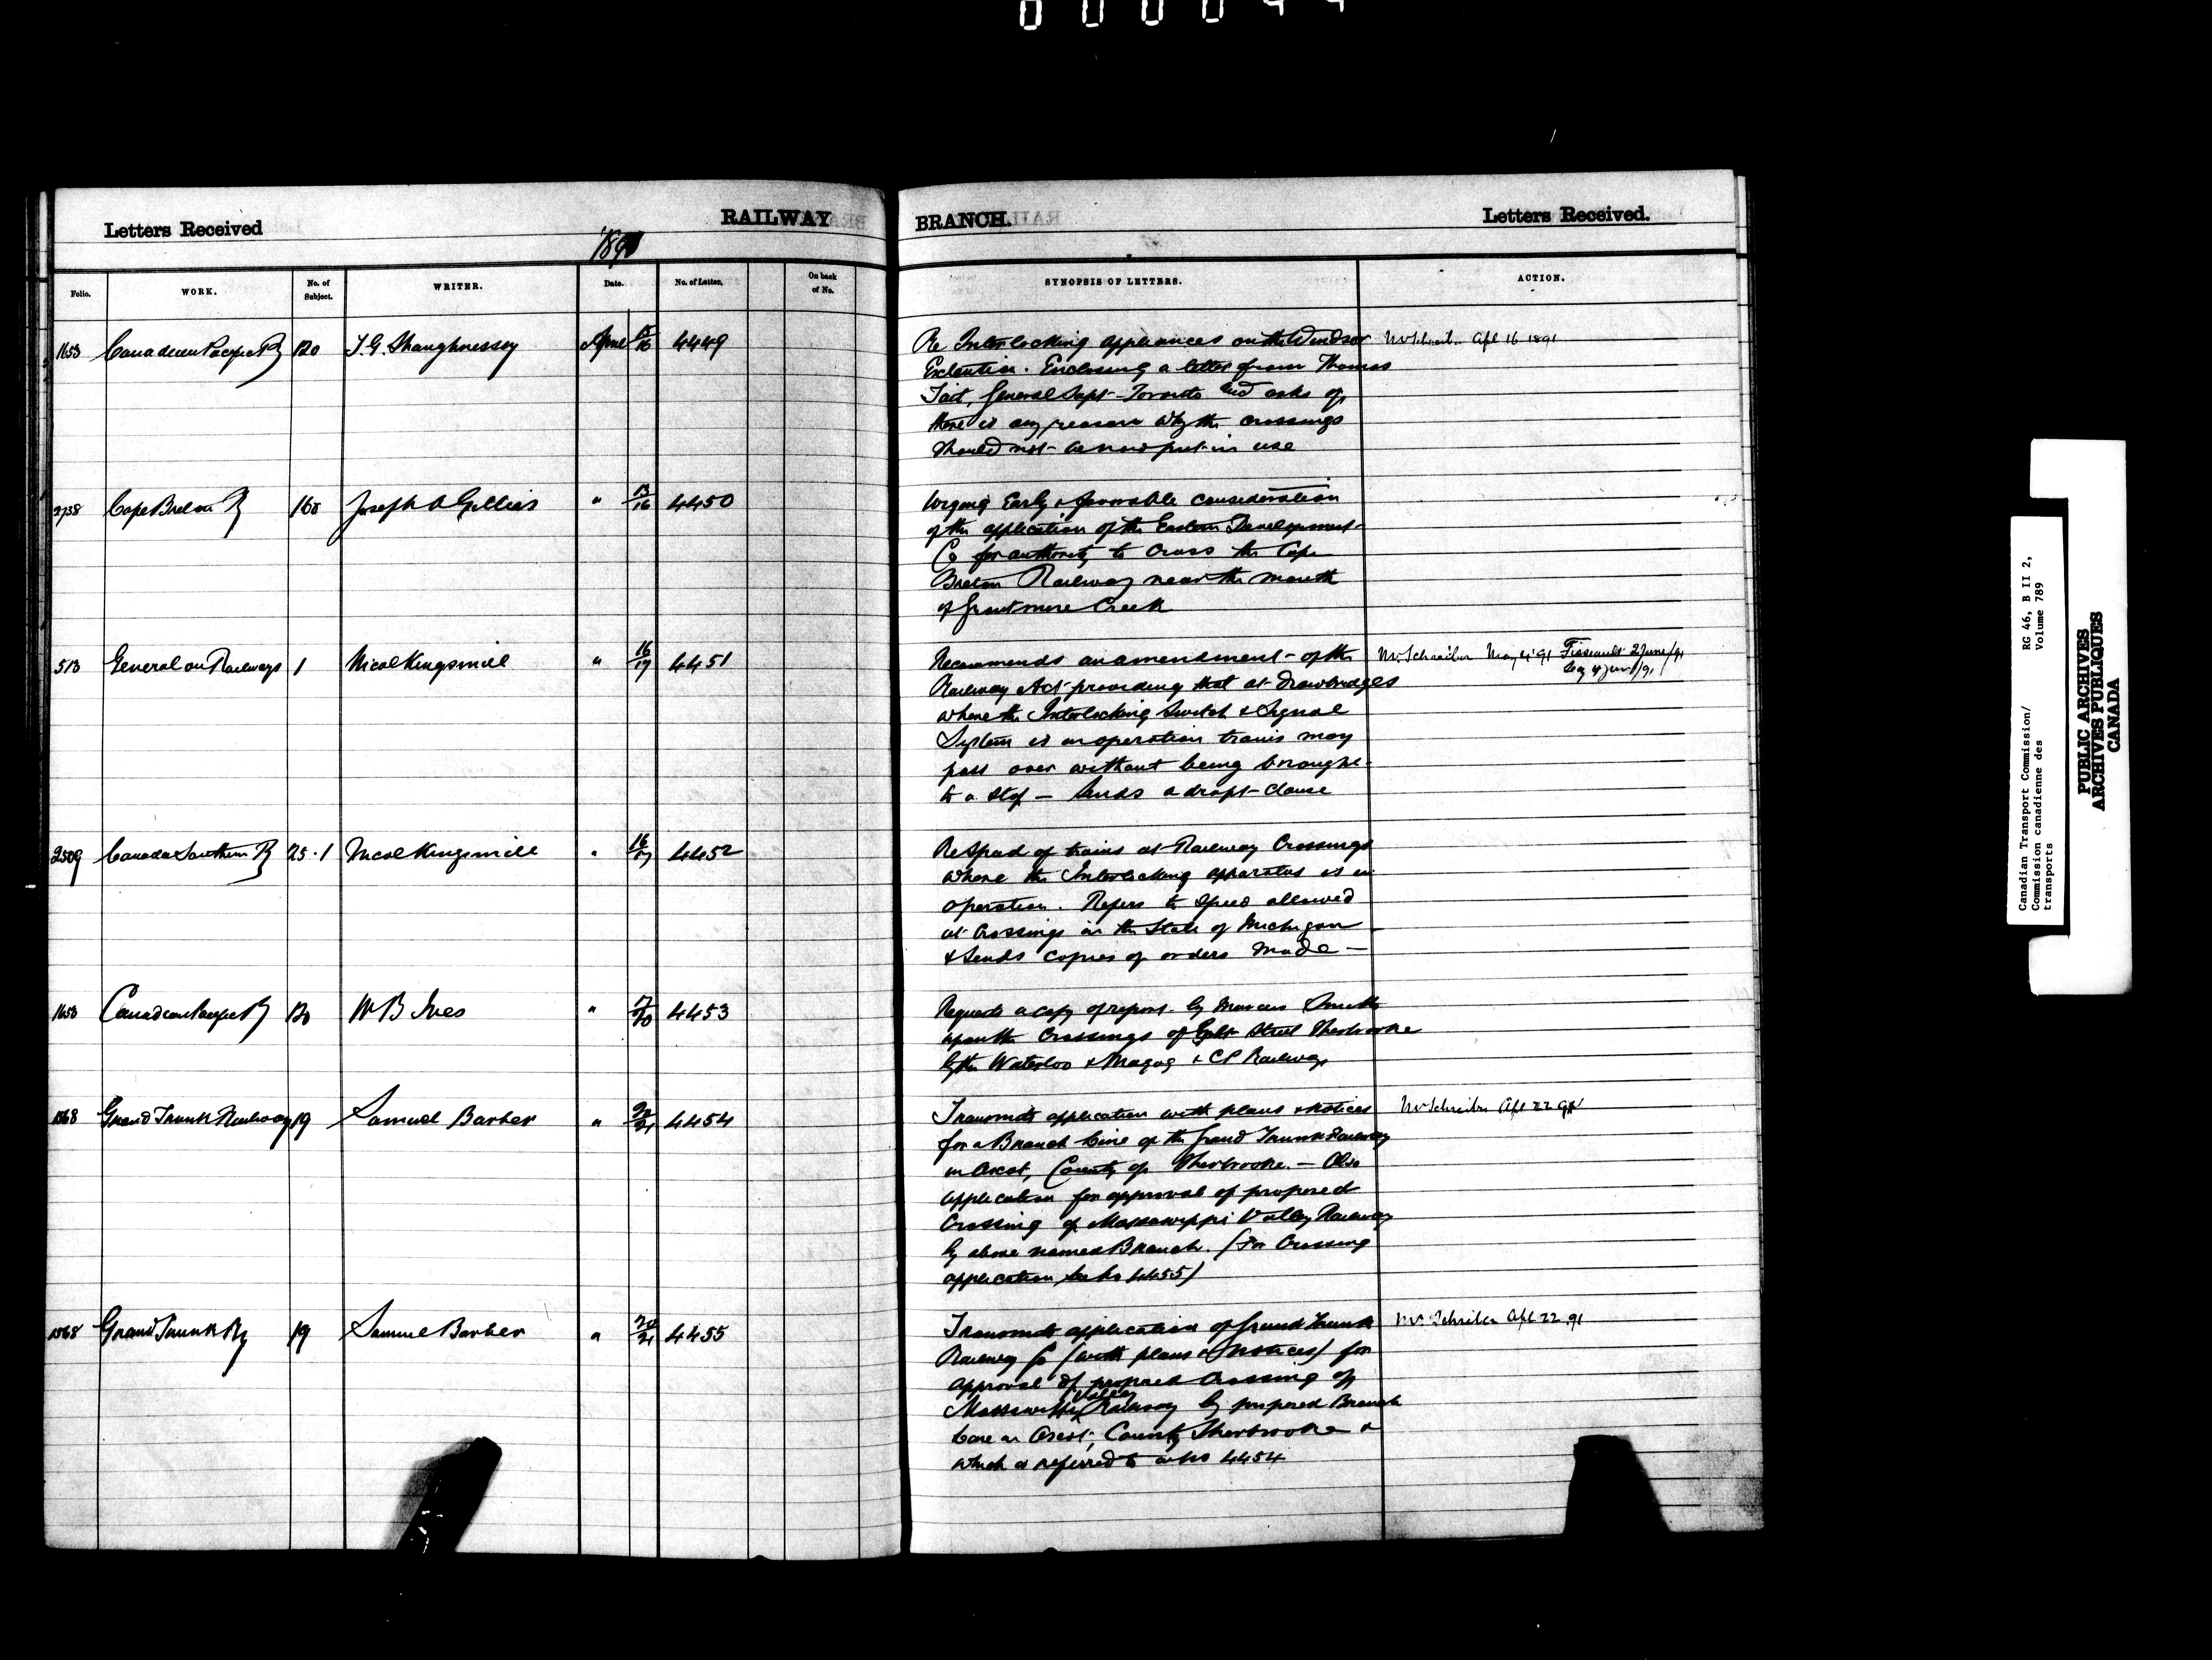 Letters Received
RAILWAY
BRANCH.
Letters Received.
1891
Folio.
WORK.
No. of Subject.
WRITER.
Date.
No. of Letter.
On back of No.
SYNOPSIS OF LETTERS.
ACTION.
1653 Canadian Pacific Ry 120 T.G. Shaughnessy April 15/16 4449
Re Interlocking appliances on the Windsor
Extention. Enclosing a letter from Thomas
Tait, General Supt Toronto and asks if
there is any reason why the crossings
should not be now put in use
Mr Schreiber Apl 16 1891
2738 Cape Breton Ry 168 Joseph A Gillies " 13/16 4450
Urging Early & favorable consideration
of the application of the Eastern Development
Co for authority to cross the Cape
Breton Railway near the mouth
of Creek
513 General on Railways 1 Nicol Kingsmill " 16/17 4451
Recommends an amendment of the
Railway Act providing that at drawbridges
where the Interlocking Switch & Signal
System is in operation trains may
pass over without being brought
to a stop — Sends a draft clause
Mr. Schreiber May 4 '91 2 June/91
4 June/91
2509 Canada Southern Ry 25.1 Nicol Kingsmill " 16/17 4452
Re Speed of trains at Railway Crossings
where the Interlocking apparatus is in
operation. Refers to speed allowed
at Crossings in the State of Michigan
& Sends copies of orders made —
1653 Canadian Pacific Ry 120 W B Ives " 17/20 4453
Requests a copy of report by Marcus Smith
upon the Crossings of Galt Street Sherbrooke
by the Waterloo & Magog & CP Railways
1568 Grand Trunk Railway 19 Samuel Barber " 20/21 4454
Transmits application with plans & notices
for a Branch Line of the Grand Trunk Railway
in Ascot, County of Sherbrooke. — Also
application for approval of proposed
Crossing of Massawippi Valley Railway
by above named Branch. (For Crossing
application see No 4455)
Mr Schreiber Apl 22 91
1568 Grand Trunk Ry 19 Samuel Barber " 20/21 4455
Transmits application of Grand Trunk
Railway Co (with plans & notices) for
approval of proposed Crossing of
Massawippi Valley Railway by proposed Branch
Line in Ascot, County Sherbrooke &
which is referred to in No 4454
Mr Schreiber Apl 22 91
Canadian Transport Commission/
Commission canadienne des
transports
RG 46, B II 2,
Volume 789
PUBLIC ARCHIVES
ARCHIVES PUBLIQUES
CANADA